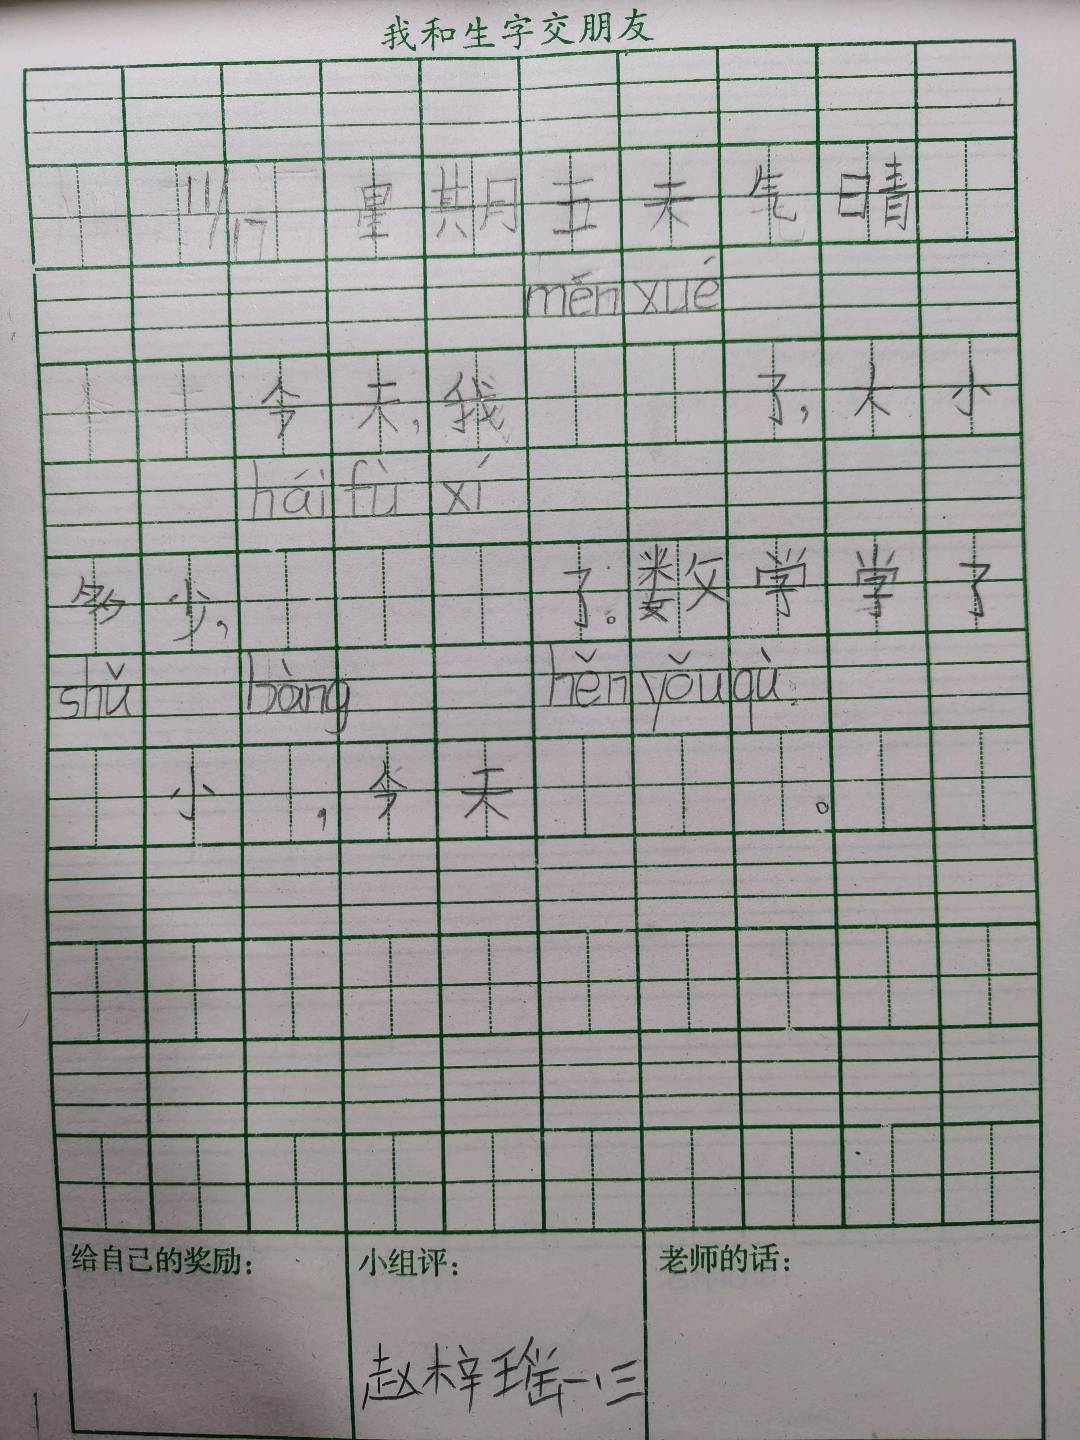 我和生字交朋友
11/17 星期五天气晴
měn xué
今天,我 了,大小
hái fù xí
多少, 了。数学学了
shǔ bàng hěn yǒu qù
小 ,今天 。
给自己的奖励: 小组评: 老师的话:
赵梓瑶一、三